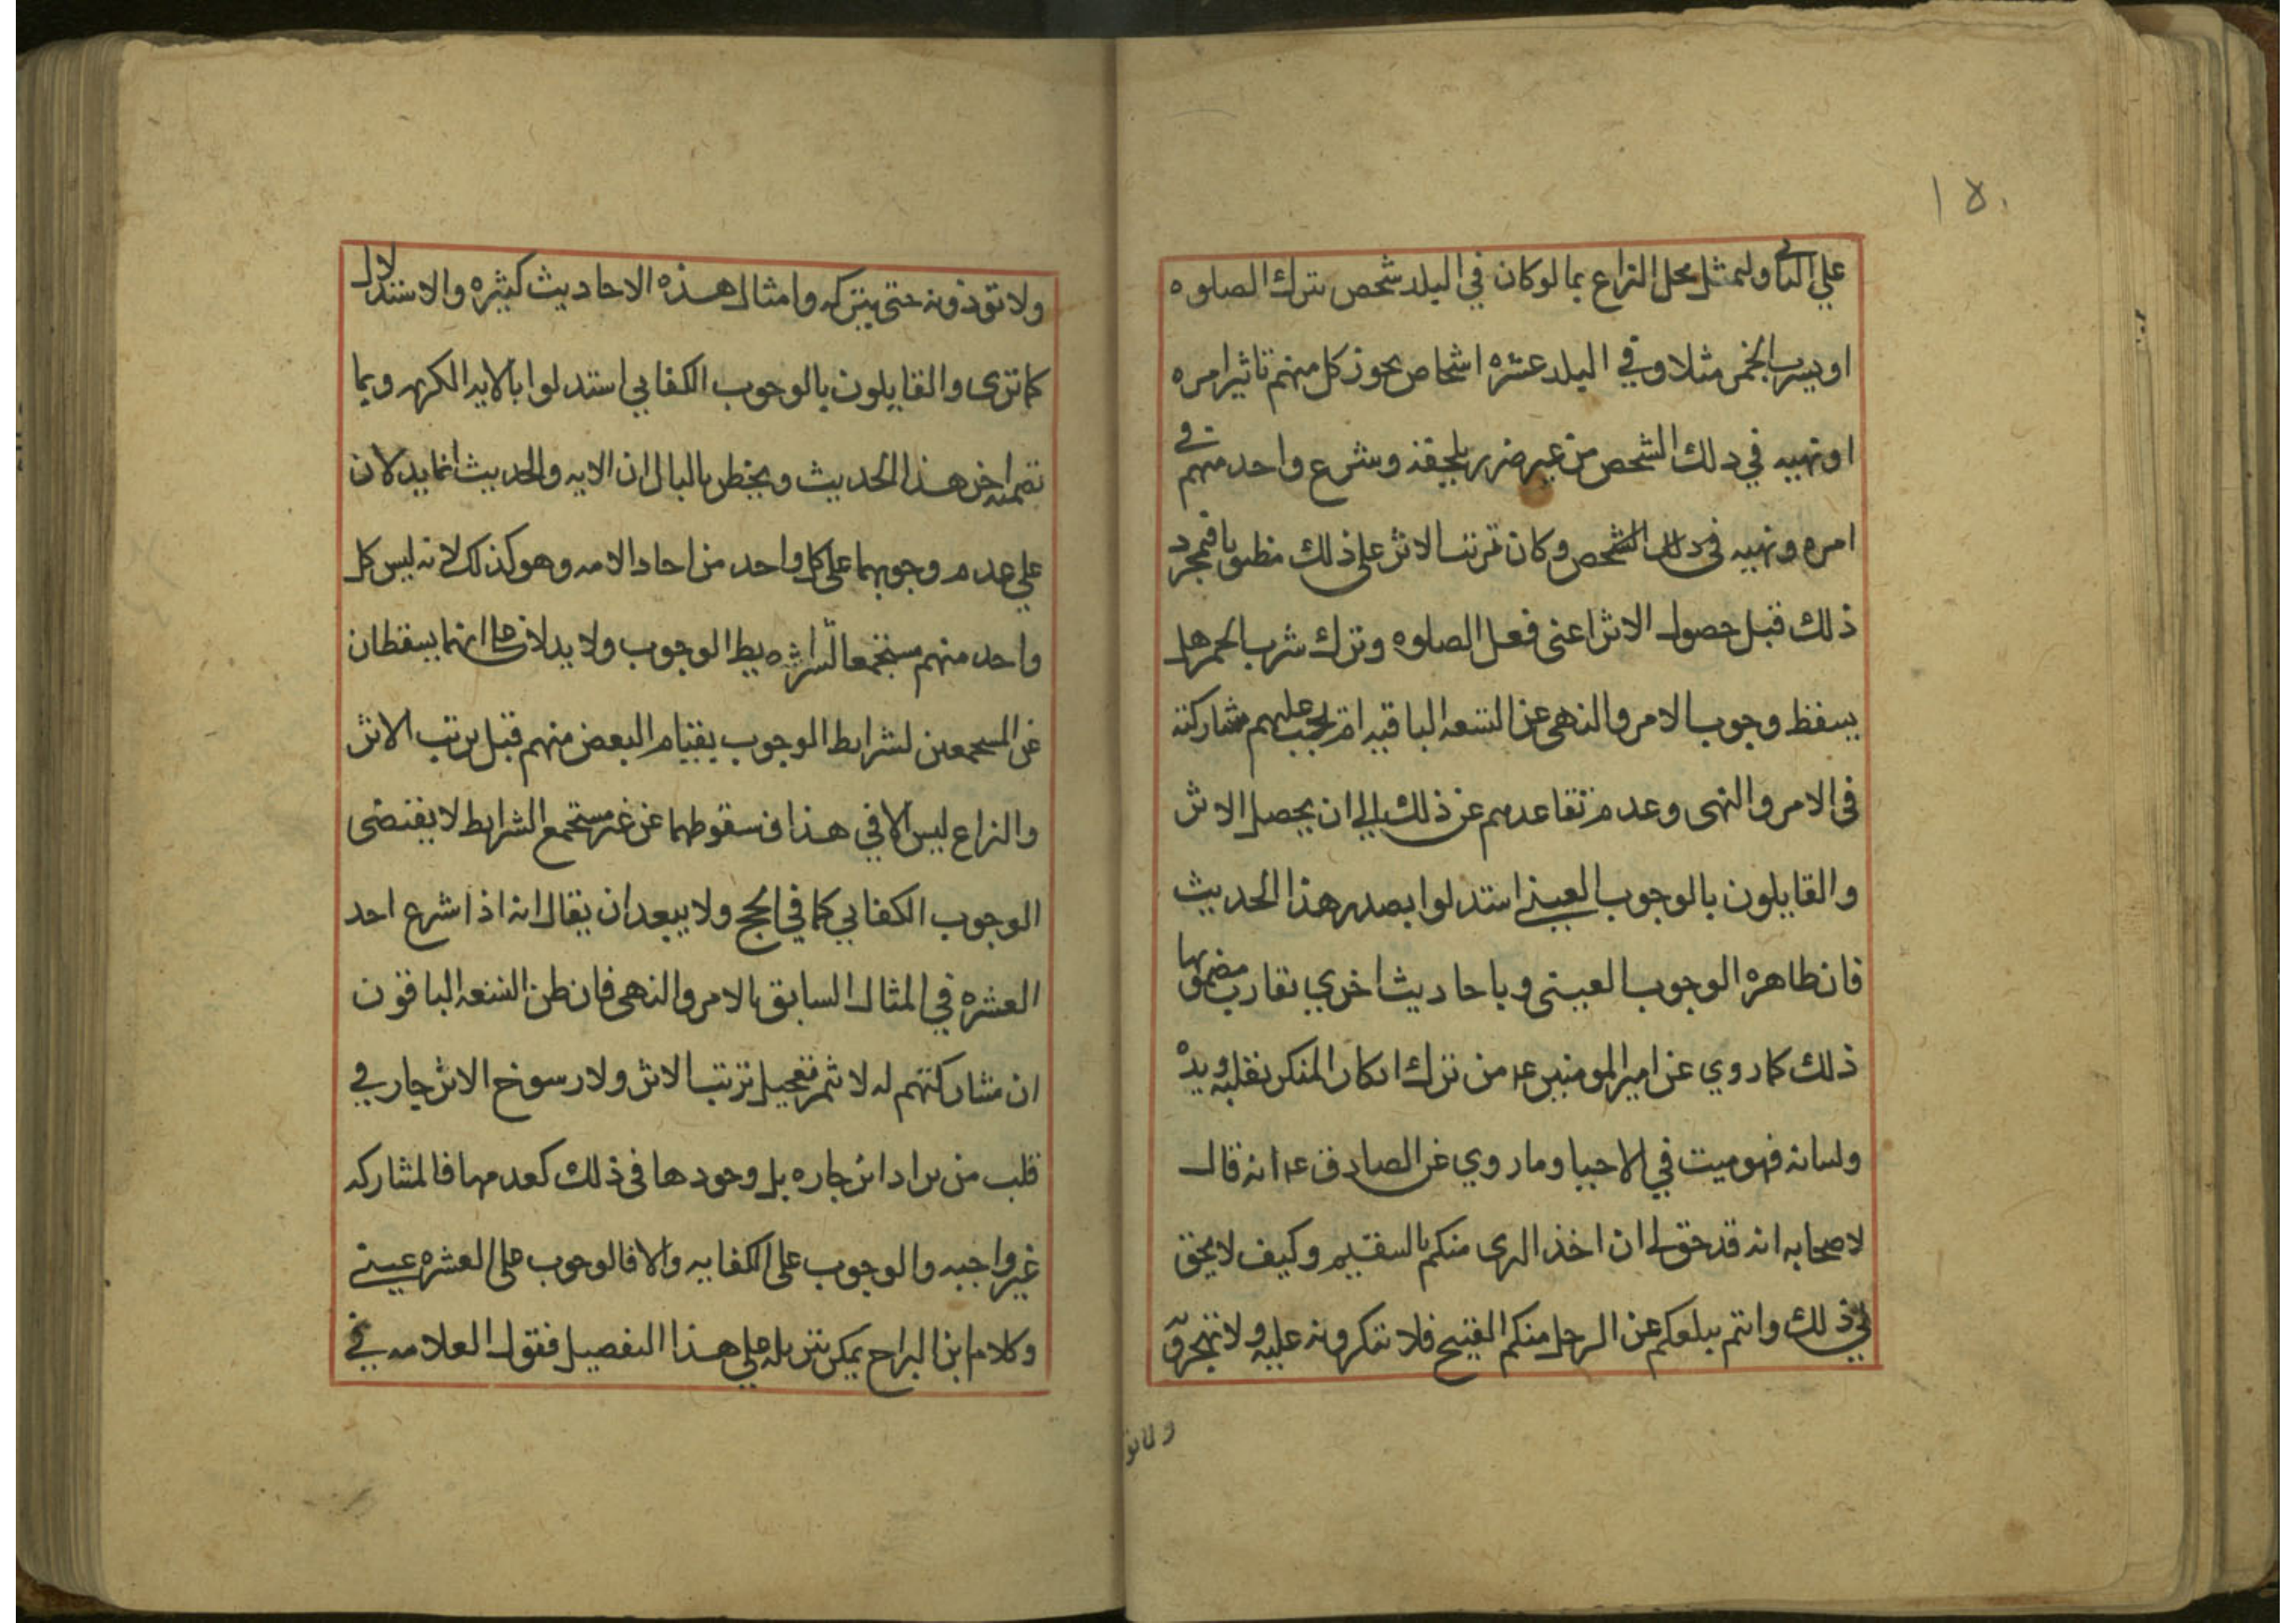 ١٥٠
علي الثاني وليمثل محل النزاع بما لو كان في البلد شخص يترك الصلوه
او يشرب الخمر مثلا وفي البلد عشره اشخاص يجوز كل منهم تاثير امره
او نهيه في ذلك الشخص من غير ضرر يلحقه وشرع واحد منهم في
امره ونهيه في ذلك الشخص وكان ترتب الاثر على ذلك مظنونا فبمجرد
ذلك قبل حصول الاثر اعنى فعل الصلوه وترك شرب الخمر هل
يسقط وجوب الامر والنهى عن التسعه الباقيه ام يجب عليهم مشاركته
في الامر والنهى وعدم تقاعدهم عن ذلك الي ان يحصل الاثر
والقايلون بالوجوب العيني استدلوا بصدر هذا الحديث
فان ظاهره الوجوب العينى وباحاديث اخري تقارب مضمونها
ذلك كما روي عن امير المومنين ع من ترك انكار المنكر بقلبه ويده
ولسانه فهو ميت في الاحيا وما روي عن الصادق ع انه قال
لاصحابه انه قد حق لي ان اخذ البرى منكم بالسقيم وكيف لا يحق
لي ذلك وانتم يبلغكم عن الرجل منكم القبيح فلا تنكرونه عليه ولا تهجرونه
ولا تؤ
ولا توذونه حتى يتركه وامثال هذه الاحاديث كثيره والاستدلال
كما ترى والقايلون بالوجوب الكفايي استدلوا بالايه الكريمه وبما
تضمنه اخر هذا الحديث ويخطر بالبال ان الايه والحديث انما يدلان
علي عدم وجوبهما على كل واحد من احاد الامه وهو كذلك لانه ليس كل
واحد منهم مستجمعا لشرايط الوجوب ولا يدلان على انهما يسقطان
عن المستجمعين لشرايط الوجوب بقيام البعض منهم قبل ترتب الاثر
والنزاع ليس الا في هذا فسقوطهما عن غير مستجمع الشرايط لا يقتضى
الوجوب الكفايي كما في الحج ولا يبعد ان يقال انه اذا شرع احد
العشره في المثال السابق بالامر والنهى فان ظن التسعه الباقون
ان مشاركتهم له لا تثمر تعجيل ترتب الاثر ولا رسوخ الانزجار في
قلب من يراد انزجاره بل وجودها في ذلك كعدمها فالمشاركه
غير واجبه والوجوب على الكفايه والا فالوجوب على العشره عيني
وكلام ابن البراج يمكن تنزيله على هذا التفصيل فقول العلامه في